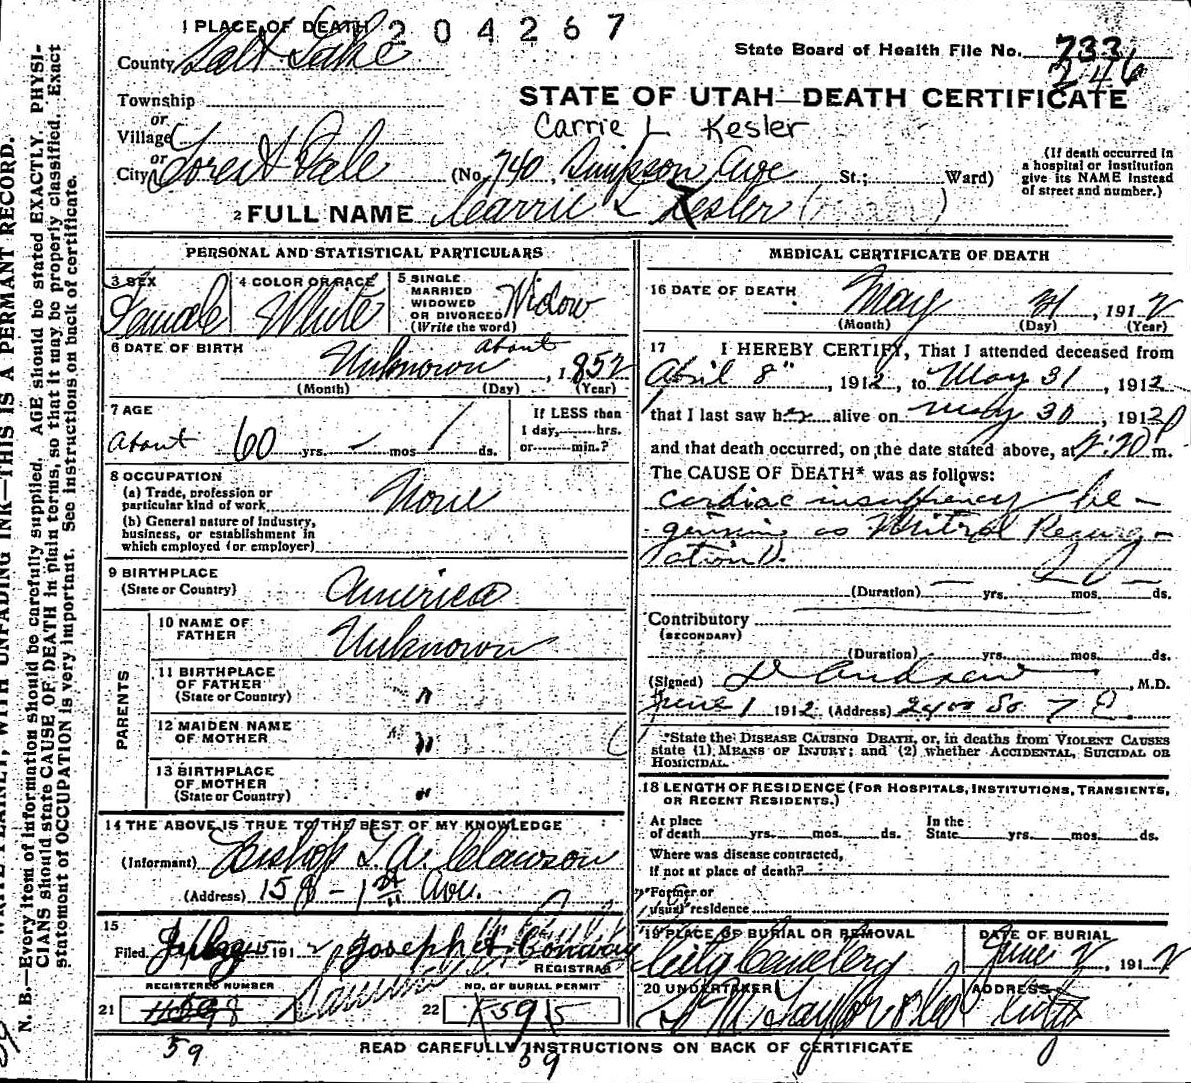 1 PLACE OF DEATH 204267
State Board of Health File No. 733
246
County Salt Lake
STATE OF UTAH—DEATH CERTIFICATE
Township
or
Village
Carrie L Kesler
or
City Forest Dale (No. 740 Simpson Ave St.; Ward)
(If death occurred in a hospital or institution give its NAME instead of street and number.)
2 FULL NAME Carrie L Kesler
PERSONAL AND STATISTICAL PARTICULARS
3 SEX Female
4 COLOR OR RACE White
5 SINGLE MARRIED WIDOWED OR DIVORCED (Write the word) Widow
6 DATE OF BIRTH Unknown about, 1852
(Month) (Day) (Year)
7 AGE
About 60 yrs. - mos / ds.
If LESS than 1 day, hrs. or min.?
8 OCCUPATION
(a) Trade, profession or particular kind of work None
(b) General nature of industry, business, or establishment in which employed (or employer)
9 BIRTHPLACE
(State or Country) America
PARENTS
10 NAME OF FATHER Unknown
11 BIRTHPLACE OF FATHER (State or Country) "
12 MAIDEN NAME OF MOTHER "
13 BIRTHPLACE OF MOTHER (State or Country) "
14 THE ABOVE IS TRUE TO THE BEST OF MY KNOWLEDGE
(Informant) Bishop Clawson
(Address) 158 - 1st Ave.
15
Filed 191 2 Joseph
REGISTRAR
21 REGISTERED NUMBER
22 NO. OF BURIAL PERMIT
59 59
MEDICAL CERTIFICATE OF DEATH
16 DATE OF DEATH May 31, 1912
(Month) (Day) (Year)
17 I HEREBY CERTIFY, That I attended deceased from
April 8", 1912, to May 31, 1912
that I last saw her alive on May 30, 1912
and that death occurred, on the date stated above, at m.
The CAUSE OF DEATH* was as follows:
cardiac insufficiency be-
ginning as Mitral Regurg-
(Duration) yrs. mos. ds.
Contributory
(SECONDARY)
(Duration) yrs. mos. ds.
(Signed) Andrew, M.D.
June 1 1912 (Address) 2400 So. 7 E.
*State the DISEASE CAUSING DEATH, or, in deaths from VIOLENT CAUSES state (1) MEANS OF INJURY; and (2) whether ACCIDENTAL, SUICIDAL OR HOMICIDAL.
18 LENGTH OF RESIDENCE (FOR HOSPITALS, INSTITUTIONS, TRANSIENTS, OR RECENT RESIDENTS.)
At place of death yrs. mos. ds. In the State yrs. mos. ds.
Where was disease contracted,
If not at place of death?
Former or usual residence
19 PLACE OF BURIAL OR REMOVAL City Cemetery
DATE OF BURIAL June 2, 1912
20 UNDERTAKER Taylor
ADDRESS City
READ CAREFULLY INSTRUCTIONS ON BACK OF CERTIFICATE
WITH UNFADING INK—THIS IS A PERMANT RECORD.
N. B.—Every item of information should be carefully supplied, AGE should be stated EXACTLY. PHYSI-
CIANS should state CAUSE OF DEATH in plain terms, so that it may be properly classified. Exact
statement of OCCUPATION is very important. See instructions on back of certificate.